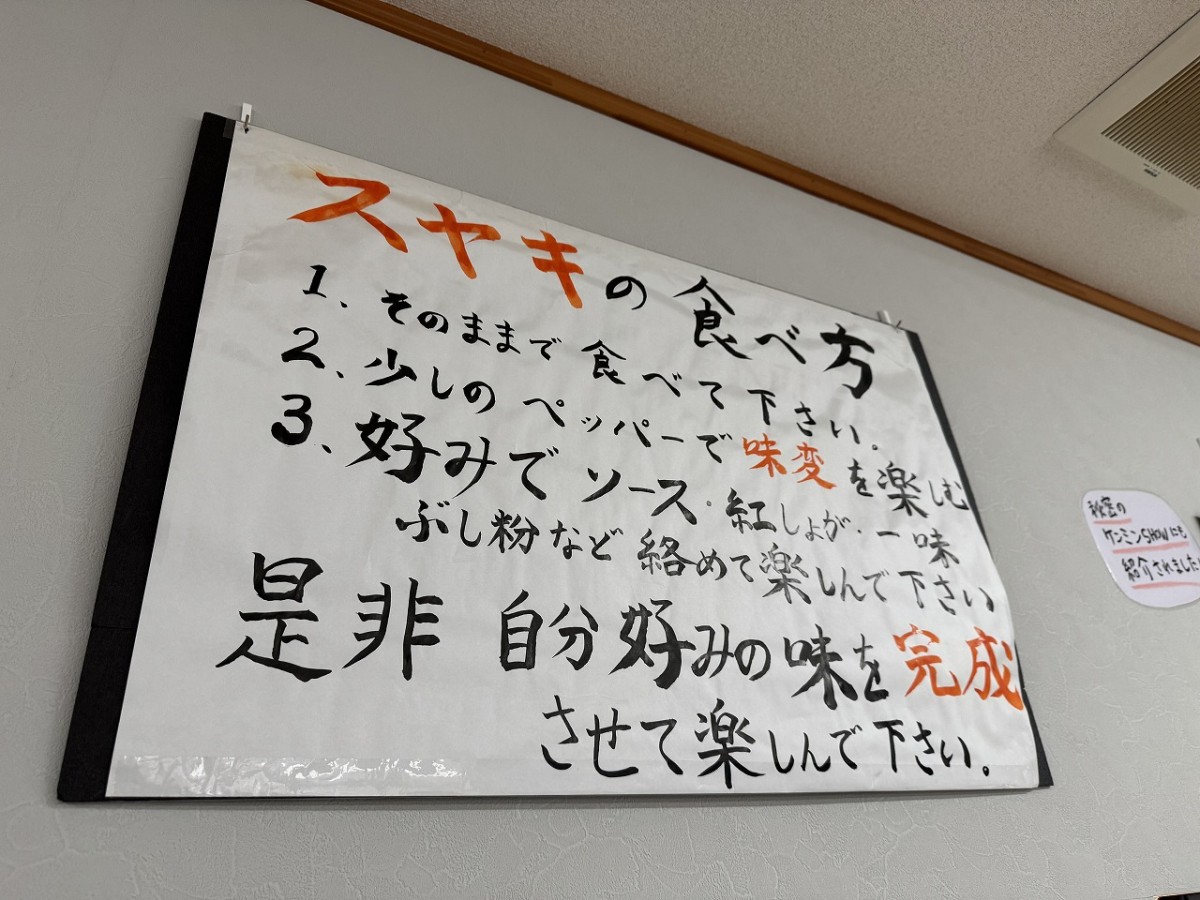 スヤキの食べ方
1、そのままで食べて下さい。
2、少しのペッパーで味変を楽しむ
3、好みでソース・紅しょが・一味
ぶし粉など絡めて楽しんで下さい
是非自分好みの味を完成
させて楽しんで下さい。
秘密の
ケンミンSHOWにも
紹介されました!